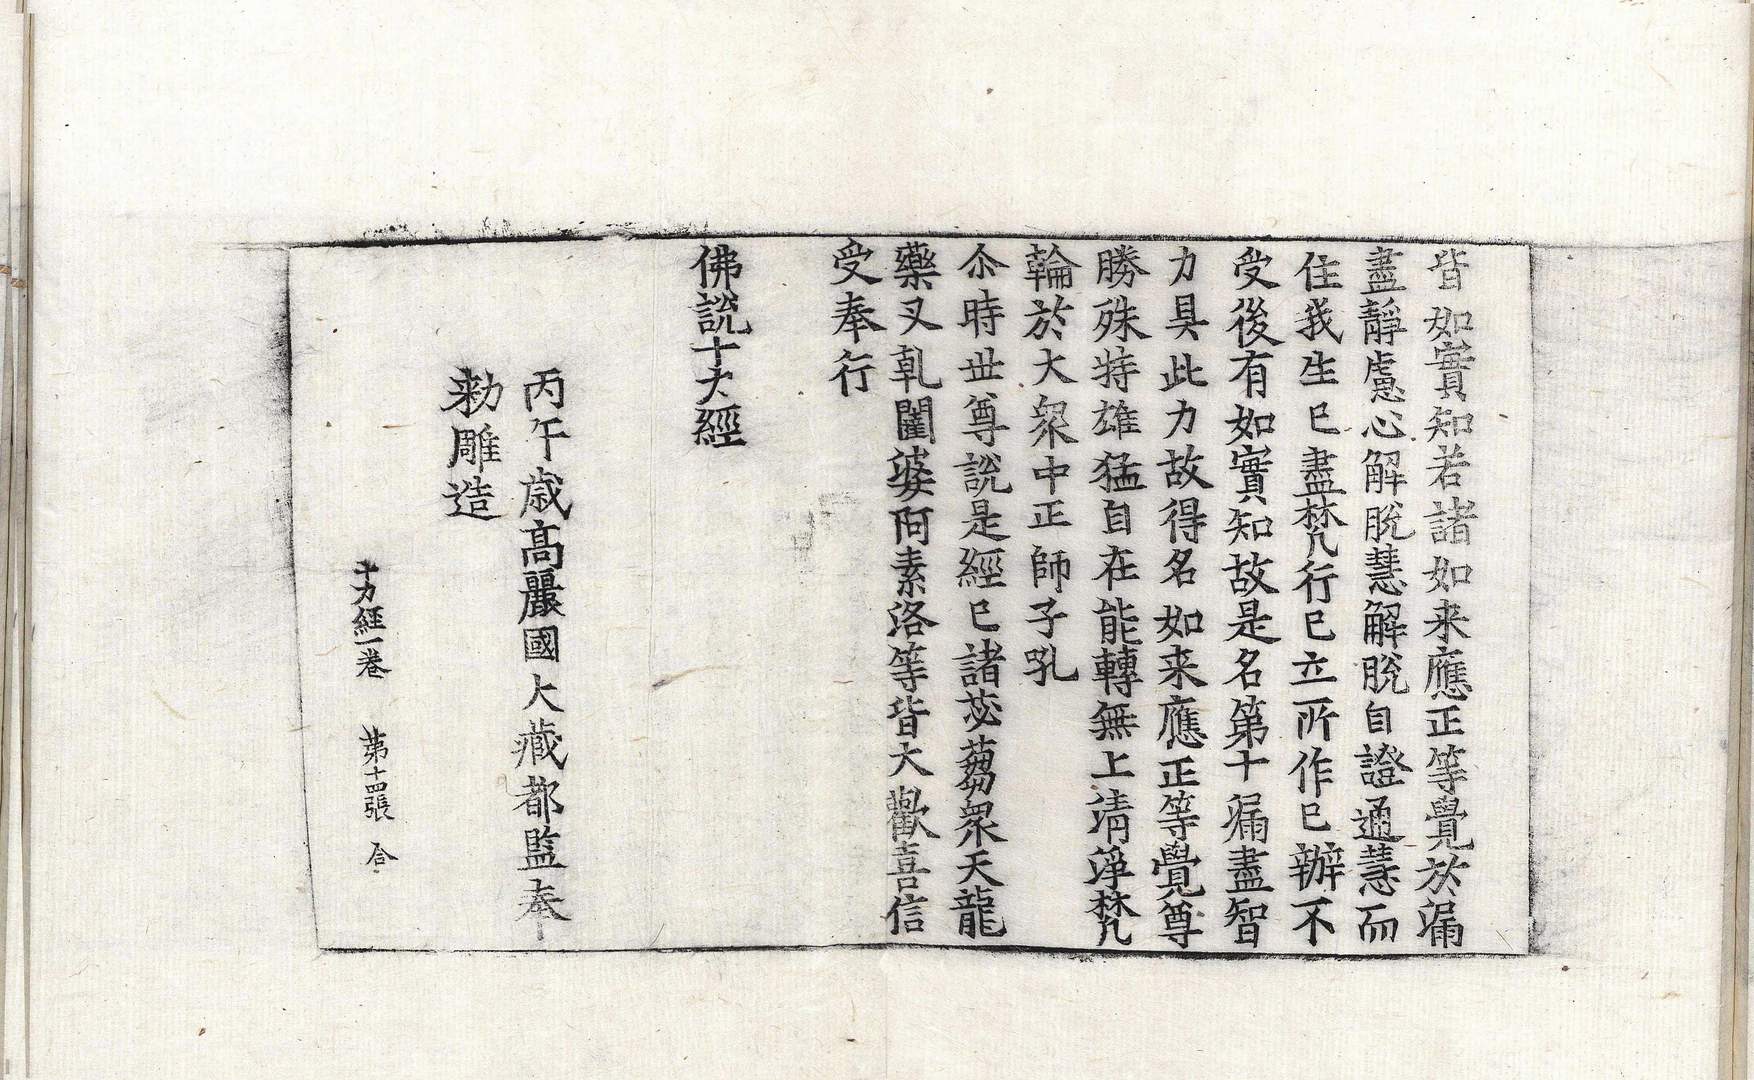 皆如實知若諸如来應正等覺於漏
盡靜慮心解脫慧解脫自證通慧而
住我生已盡梵行已立所作已辦不
受後有如實知故是名第十漏盡智
力具此力故得名如来應正等覺尊
勝殊特雄猛自在能轉無上清淨梵
輪於大衆中正師子吼
尒時世尊說是經已諸苾蒭衆天龍
藥叉乹闥婆阿素洛等皆大歡喜信
受奉行
佛說十力經
丙午歳高麗國大藏都監奉
勑雕造
十力經一卷 第十四張 合